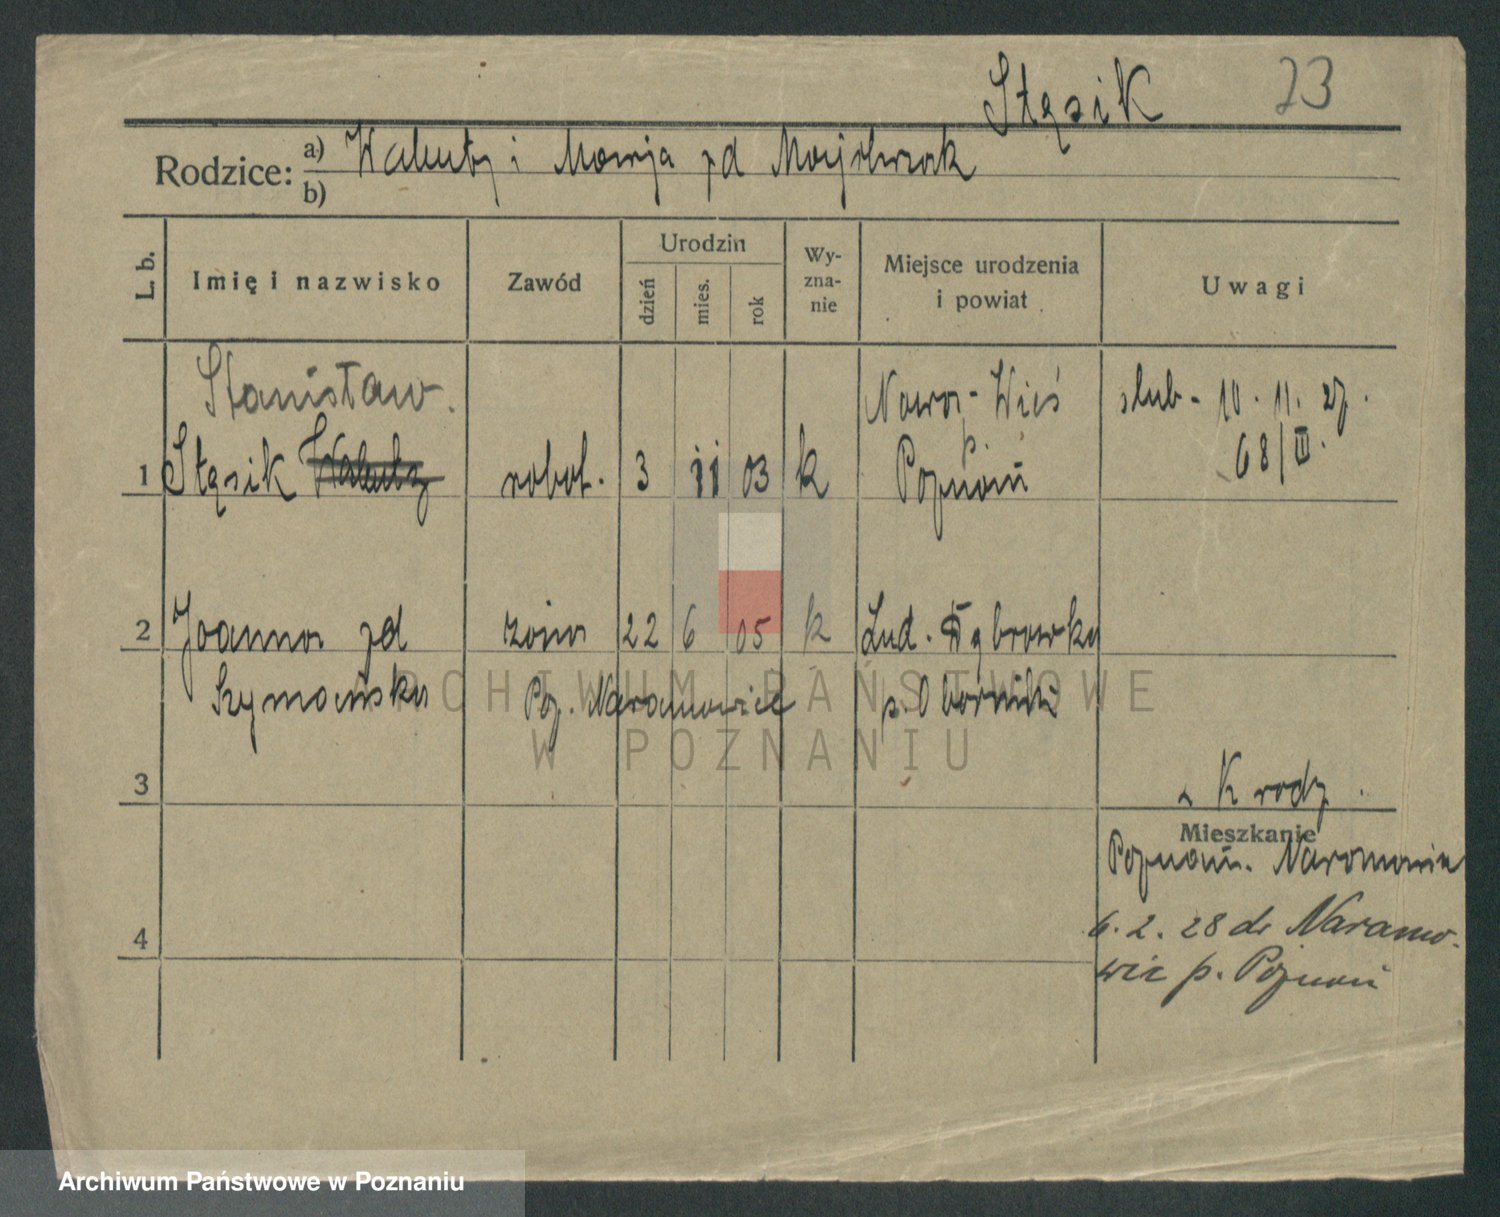 Stęsik 23
Rodzice: a) Walenty i Marja zd Majchrzak
b)
L. b. Imię i nazwisko Zawód Urodzin dzień mies. rok Wy-zna-nie Miejsce urodzenia i powiat Uwagi
Stanisław. Nowa-Wieś ślub - 10. 11. 27.
p. 68/III.
1 Stęsik Walenty robot. 3 11 03 k Poznań
2 Joanna zd żona 22 6 05 k Lud. Dąbrowka
Szymańska Poz. Naramowice p. Oborniki
3 K rodz.
Mieszkanie
Poznań. Naramowice
4 6. 2. 28 do Naramo-
wic p. Poznań
ARCHIWUM PAŃSTWOWE
W POZNANIU
Archiwum Państwowe w Poznaniu